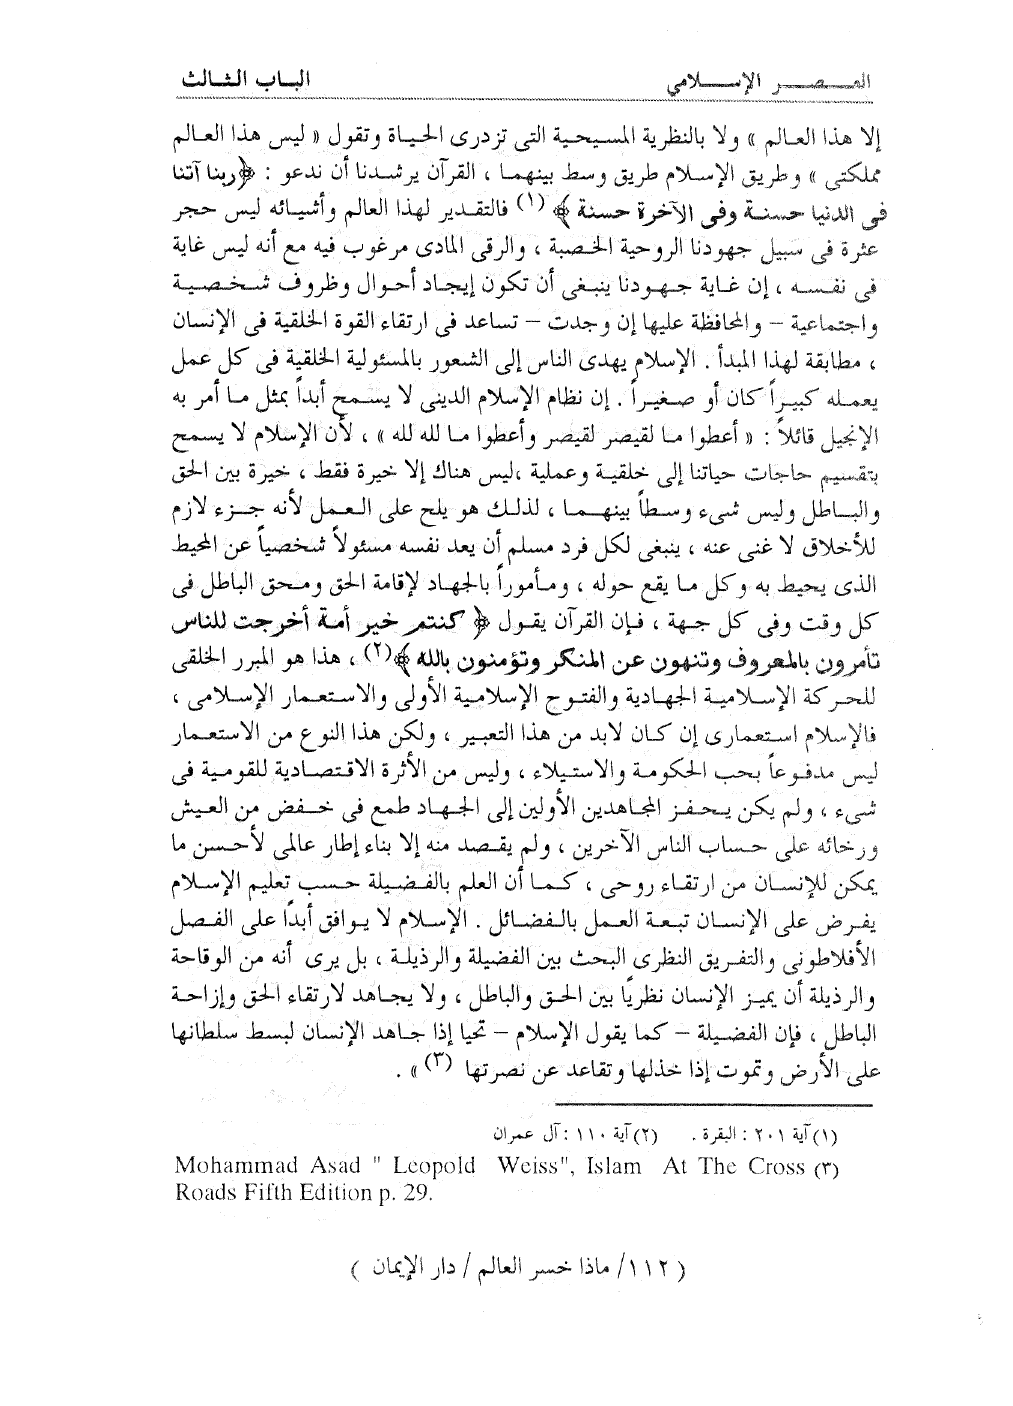 العصر الإسلامي
الباب الثالث
إلا هذا العالم » ولا بالنظرية المسيحية التى تزدرى الحياة وتقول « ليس هذا العالم
مملكتى » وطريق الإسلام طريق وسط بينهما ، القرآن يرشدنا أن ندعو : ﴿ربنا آتنا
فى الدنيا حسنة وفى الآخرة حسنة ﴾ (١) فالتقدير لهذا العالم وأشيائه ليس حجر
عثرة فى سبيل جهودنا الروحية الخصبة ، والرقى المادى مرغوب فيه مع أنه ليس غاية
فى نفسه ، إن غاية جهودنا ينبغى أن تكون إيجاد أحوال وظروف شخصية
واجتماعية – والمحافظة عليها إن وجدت – تساعد فى ارتقاء القوة الخلقية فى الإنسان
، مطابقة لهذا المبدأ . الإسلام يهدى الناس إلى الشعور بالمسئولية الخلقية فى كل عمل
يعمله كبيراً كان أو صغيراً . إن نظام الإسلام الدينى لا يسمح أبداً بمثل ما أمر به
الإنجيل قائلاً : « أعطوا ما لقيصر لقيصر وأعطوا ما لله لله » ، لأن الإسلام لا يسمح
بتقسيم حاجات حياتنا إلى خلقية وعملية ،ليس هناك إلا خيرة فقط ، خيرة بين الحق
والباطل وليس شىء وسطاً بينهما ، لذلك هو يلح على العمل لأنه جزء لازم
للأخلاق لا غنى عنه ، ينبغى لكل فرد مسلم أن يعد نفسه مسئولاً شخصياً عن المحيط
الذى يحيط به وكل ما يقع حوله ، ومأموراً بالجهاد لإقامة الحق ومحق الباطل فى
كل وقت وفى كل جهة ، فإن القرآن يقول ﴿ كنتم خير أمة أخرجت للناس
تأمرون بالمعروف وتنهون عن المنكر وتؤمنون بالله ﴾(٢) ، هذا هو المبرر الخلقى
للحركة الإسلامية الجهادية والفتوح الإسلامية الأولى والاستعمار الإسلامى ،
فالإسلام استعمارى إن كان لابد من هذا التعبير ، ولكن هذا النوع من الاستعمار
ليس مدفوعاً بحب الحكومة والاستيلاء ، وليس من الأثرة الاقتصادية للقومية فى
شىء ، ولم يكن يحفز المجاهدين الأولين إلى الجهاد طمع فى خفض من العيش
ورخائه على حساب الناس الآخرين ، ولم يقصد منه إلا بناء إطار عالمى لأحسن ما
يمكن للإنسان من ارتقاء روحى ، كما أن العلم بالفضيلة حسب تعليم الإسلام
يفرض على الإنسان تبعة العمل بالفضائل . الإسلام لا يوافق أبداً على الفصل
الأفلاطونى والتفريق النظرى البحث بين الفضيلة والرذيلة ، بل يرى أنه من الوقاحة
والرذيلة أن يميز الإنسان نظريًا بين الحق والباطل ، ولا يجاهد لارتقاء الحق وإزاحة
الباطل ، فإن الفضيلة – كما يقول الإسلام – تحيا إذا جاهد الإنسان لبسط سلطانها
على الأرض وتموت إذا خذلها وتقاعد عن نصرتها (٣) » .
(١) آية ٢٠١ : البقرة . (٢) آية ١١٠ : آل عمران
(٣) Mohammad Asad " Leopold Weiss", Islam At The Cross
Roads Fifth Edition p. 29.
( ١١٢/ ماذا خسر العالم / دار الإيمان )